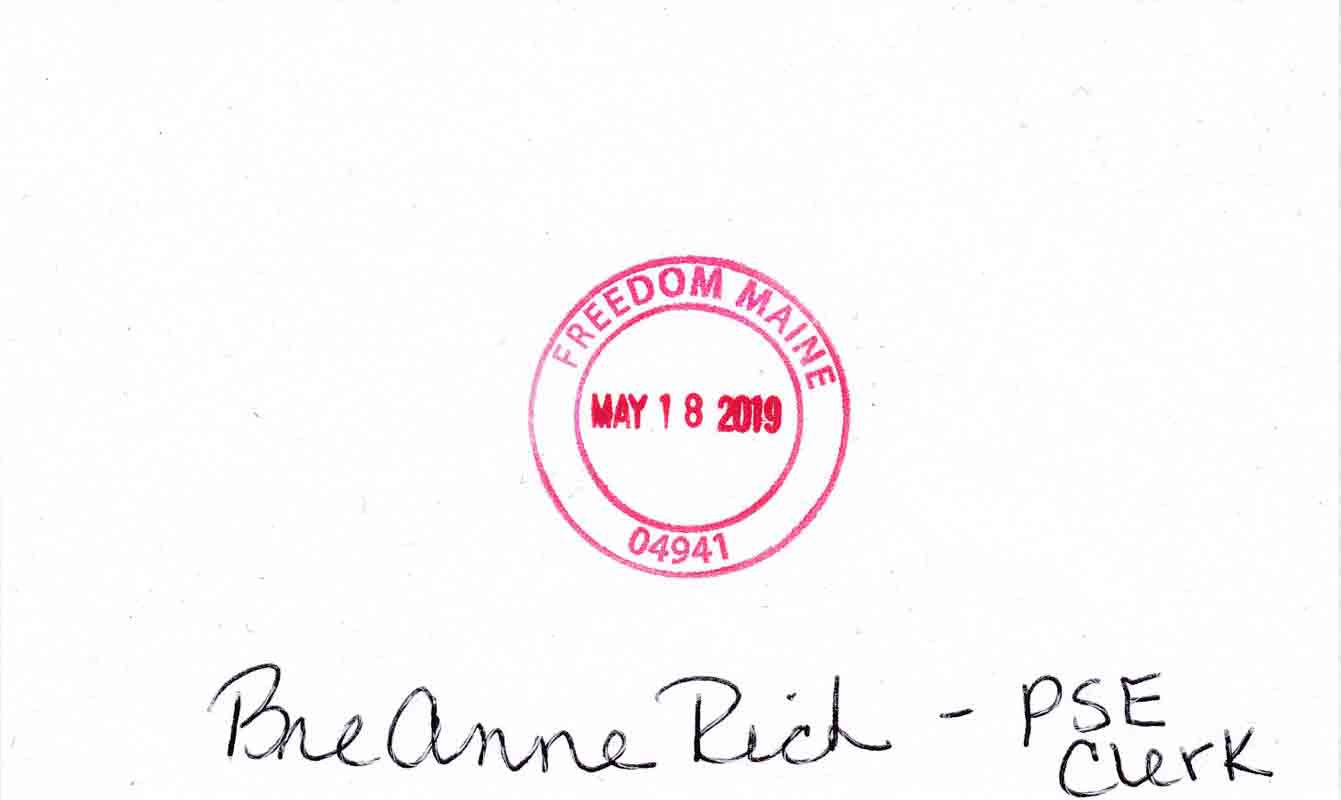 FREEDOM MAINE
MAY 18 2019
04941
BreAnne Rich - PSE
Clerk